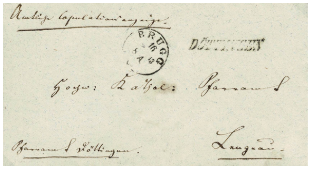 Amtliche Copulationsanzeige.
BRUGG
Hochw: Kathol: Pfarramt
Pfarramt Döttingen.
Lengnau.